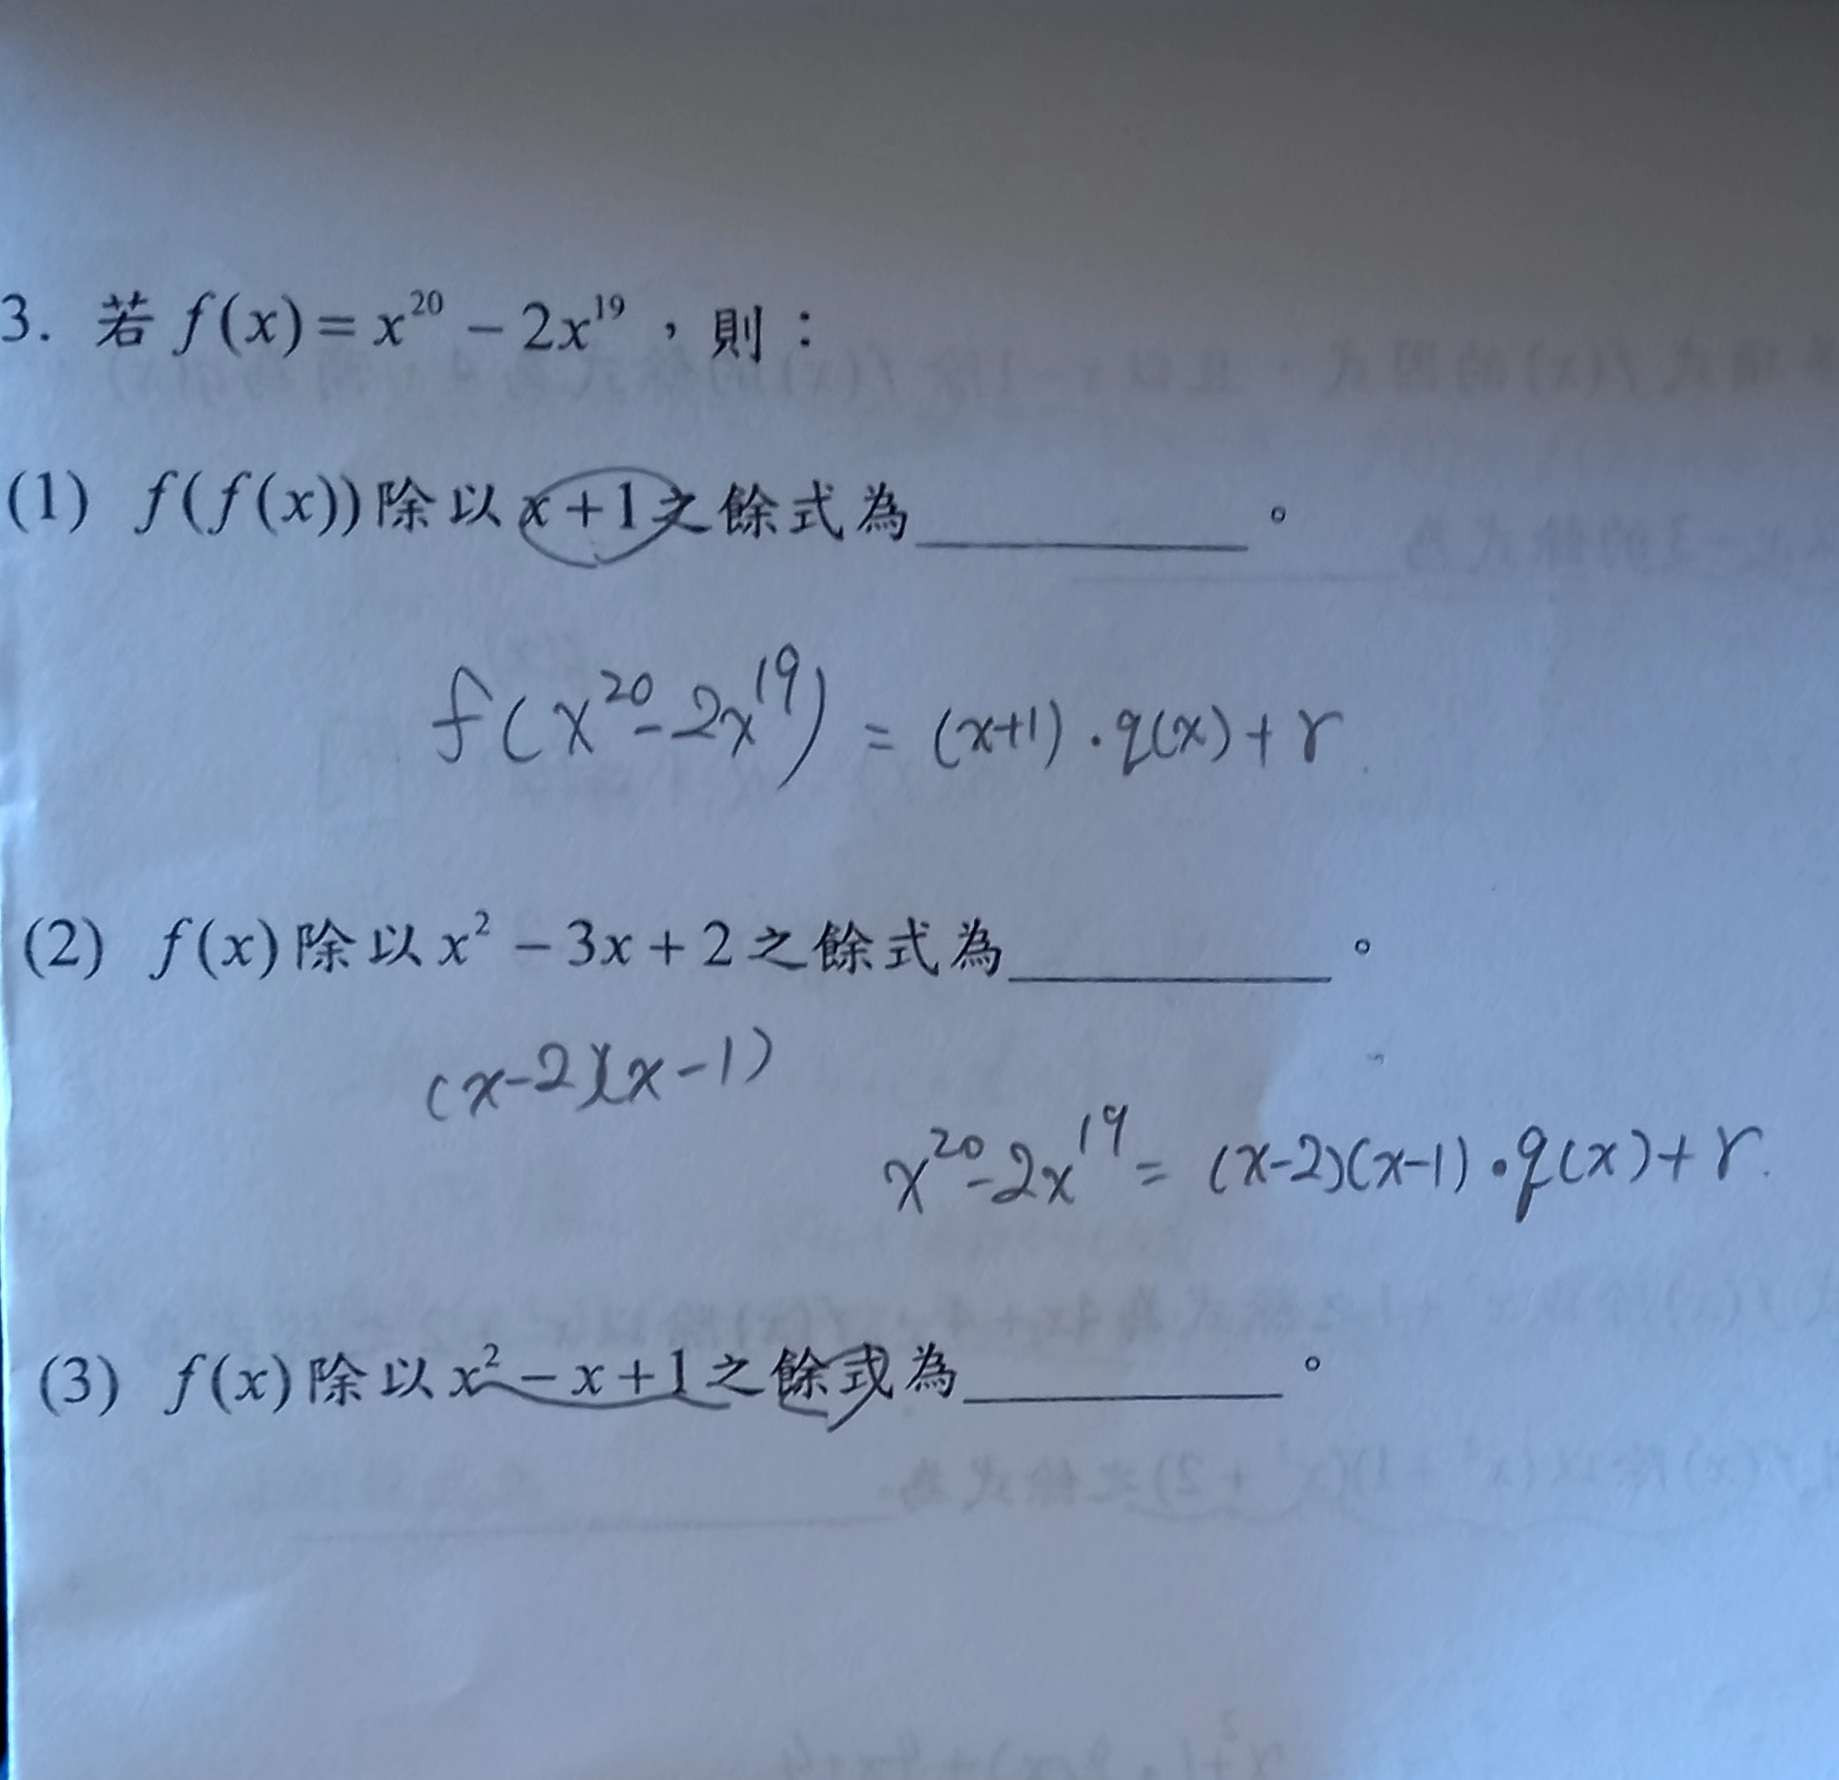 3. 若 f(x) = x²⁰ − 2x¹⁹，則：
(1) f(f(x))除以 x+1之餘式為__________。
f(x²⁰-2x¹⁹) = (x+1)·q(x)+r
(2) f(x)除以 x² − 3x + 2之餘式為__________。
(x-2)(x-1)
x²⁰-2x¹⁹ = (x-2)(x-1)·q(x)+r.
(3) f(x)除以 x² − x + 1之餘式為__________。